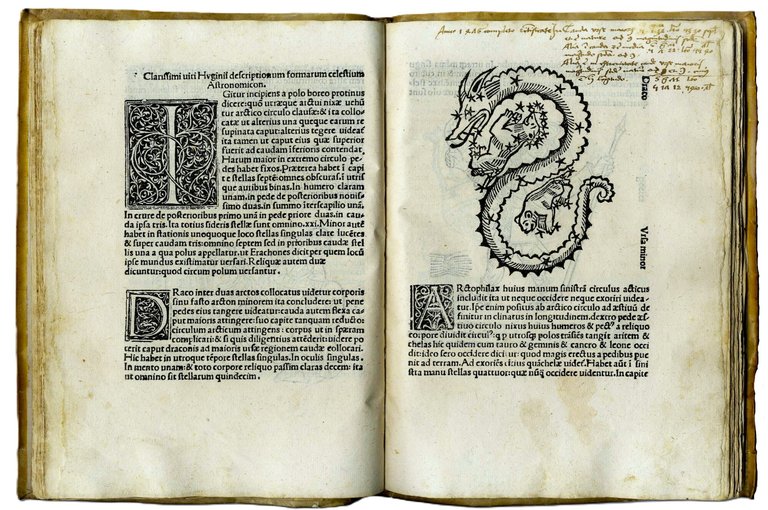 Clarissimi uiri Hyginii descriptionum formarum celestium
Astronomicon.
IGitur incipiens a polo boreo protinus
dicere: quo utræque arctui nixæ uehũ
tur arctico circulo clausæ: & ita collo
catæ ut alterius una queque earum re
supinata caput: alterius tegere uideat̃
ita tamen ut caput eius quæ superior
fuerit ad caudam iferioris contendat,
Harum maior in extremo circulo pe
des habet fixos. Præterea habet i capi
te stellas septẽ: omnes obscuras. i utris
que auribus binas. In humero claram
unam. in pede de posterioribus noui
ssimo duas. in summo iterscapilio unã.
In crure de posterioribus primo unã in pede priore duas. in cau
da ipsa tris. Ita totius sideris stellæ sunt omnino. xxi. Minor autẽ
habet in stationis unoquoque loco stellas singulas clare lucẽtes
& super caudam tris: omnino septem sed in prioribus caudæ stel
lis una a qua polus appellatur. ut Erachones dicit per quem locũ
ipse mundus existimatur uersari. Reliquæ autem duæ
dicuntur: quod circum polum uersantur.
DRaco inter duas arctos collocatus uidetur corporis
sinu facto arcton minorem ita concludere: ut pene
pedes eius tangere uideatur: cauda autem flexa ca
put maioris attingere: suo capite tanquam reducto:
circulum arcticum attingens: corpus ut in spæram
complicari: & si quis diligentius attẽderit: uidere po
terit caput draconis ad maioris ursæ regionem caudæ collocari.
Hic habet in utroque tẽpore stellas singulas. In oculis singulas.
In mento unam: & toto corpore reliquo passim claras decem: ita
ut omnino sit stellarum quindecim.
Draco
Vrsa minor
ARctophilax huius manum sinistrã circulus arcticus
includit ita ut neque occidere neque exoriri uidea
tur. Ipse enim positus ab arctico circulo ad æstiuũ de
finitur in clinatus in longitudinem. dextro pede æs
tiuo circulo nixus huius humeros & pectꝰ a reliquo
corpore diuidit circulꝰ: q̃ p utrosq; polos trãsiẽs tangit arietem &
chelas hic quidem cum tauro & geminis & cancro & leone occi
dit: ideo sero occidere dicit̃ ur: quod magis erectus a pedibus pue
nit ad terram. Ad exoriẽs
Habet aũt i sini
stra manu stellas quattuor: quæ nũq̃ occidere uidentur. In capite